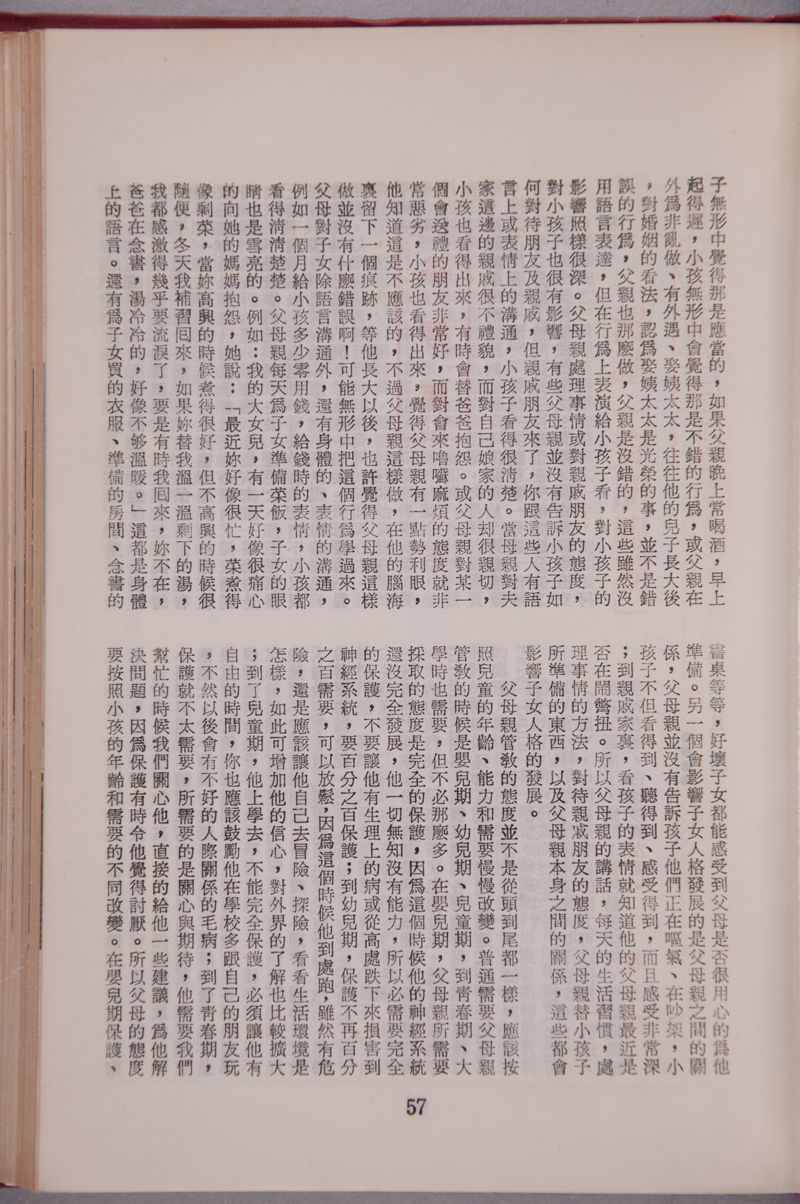 子無形中覺得那是應當的，如果父親晚上常喝酒，早上
起得遲，小孩無形中會覺得那是不錯的行爲，或父親在
外爲非亂做、有外遇、娶姨太太，往往他的兒子長大後
，對婚姻的看法，認爲娶姨太太是光榮的事，並不是錯
誤的行爲，父親也那麽做，父親是沒錯的，這些雖然沒
用語言表達，但在行爲上表演給小孩子看，對小孩子的
影響照樣很深。父母親處理事情或對親戚朋友的態度，
對小孩子也很有影響，有些父母親並沒有告訴小孩子如
何對待朋友及親戚，但親戚朋友來了，你跟這些人有語
言上或表情上的溝通，小孩子看得很淸楚。當母親對夫
家這邊的親戚很不禮貌，而對自己娘家的人却很親切，
小孩也看得出來，有時會替爸爸抱怨。或父母親對某一
個會送禮的朋友非常好，而對會來嚕囌麻煩的態度就非
常惡劣，小孩也看得出來，覺得父母親有一點勢利眼，
他知道這是不應該的，不過父母親這樣做，在他的腦海
裏留下一個痕跡，等他長大以後，也許覺得父母親這樣
做並沒有什麽錯誤啊！可能無形中把這個行爲學過來。
父母對子女除語言溝通外，還有身體的、表情的溝通，
例如一個月給小孩多少零用錢，給錢時的表情，小孩都
看得淸淸楚楚。父母親每天爲子女準備菜飯，子女的眼
睛也是雪亮的。例如：我的大女兒，有一天好像很痛心
的向她的媽媽抱怨，她說：「最近妳好像很忙，菜煮得
像剩菜，當妳高興的時候煮得很好，但不高興的時候很
隨便，冬天我補習囘來，如果妳替我溫一溫剩下的湯，
我都感激得幾乎要流淚了，要是有時我囘來，妳不在，
爸爸在念書，湯冷冷的，好像不够溫暖。」這都是身體
上的語言。還有爲子女買的衣服、準備的房間、念書的
書桌等等，好壞子女都能感受到父母是否很用心的爲他
準備。另一個會影響子女人格發展的是父母親之間的關
係，父母親並沒有告訴孩子他們正在嘔氣、在吵架，小
孩子不但看得到、聽得到、感受得到，而且感受非常深
；到親戚家裏，看孩子的表情就知道他的父母親最近是
否在鬧彆扭。所以父母親的講話，每天的生活習慣，處
理事情的方法，對待親戚朋友的態度，父母親替小孩子
所準備的東西，以及父母親本身之間的關係，這些都會
影響子女人格的發展。
父母親管敎的態度並不是從頭到尾都一樣，應該按
照兒童的年齡、能力和需要慢慢改變。普通需要父母親
管敎的時候是嬰兒期、幼兒期、兒童期，到靑春期、大
學時也需要，但不必那麽多。在嬰兒期，父母親所需要
採取的態度是完全的保護，因爲這個時候他的神經系統
還沒完全發展，他一切無知沒有能力，所以必需要完全
的保護，不要讓他有生理上的病或從高處跌下來損害到
神經系統，要百分之百保護；到幼兒期，保護不再百分
之百需要，可以放鬆，因爲這個時候他到處跑，雖然有危
險，還是應該讓他自己去冒險、探險，看看生活環境是
怎樣，如此可增加他的信心，對外界的了解也比較擴大
；到了兒童期，他上學去，不能完全保護，必須讓他有
自由的時間，你也應該鼓勵他在學校多跟自己的朋友玩
，不然以後會有不好的人際關係的毛病；到了靑春期，
保護就不太需要，所需要的是關心與期待，他需要我們
幫忙的時候我們關心他，直接的給他一些建議，爲他解
決問題，因爲保護有時令他覺得討厭。所以父母的態度
要按照小孩的年齡和需要的不同改變。在嬰兒期保護、
57